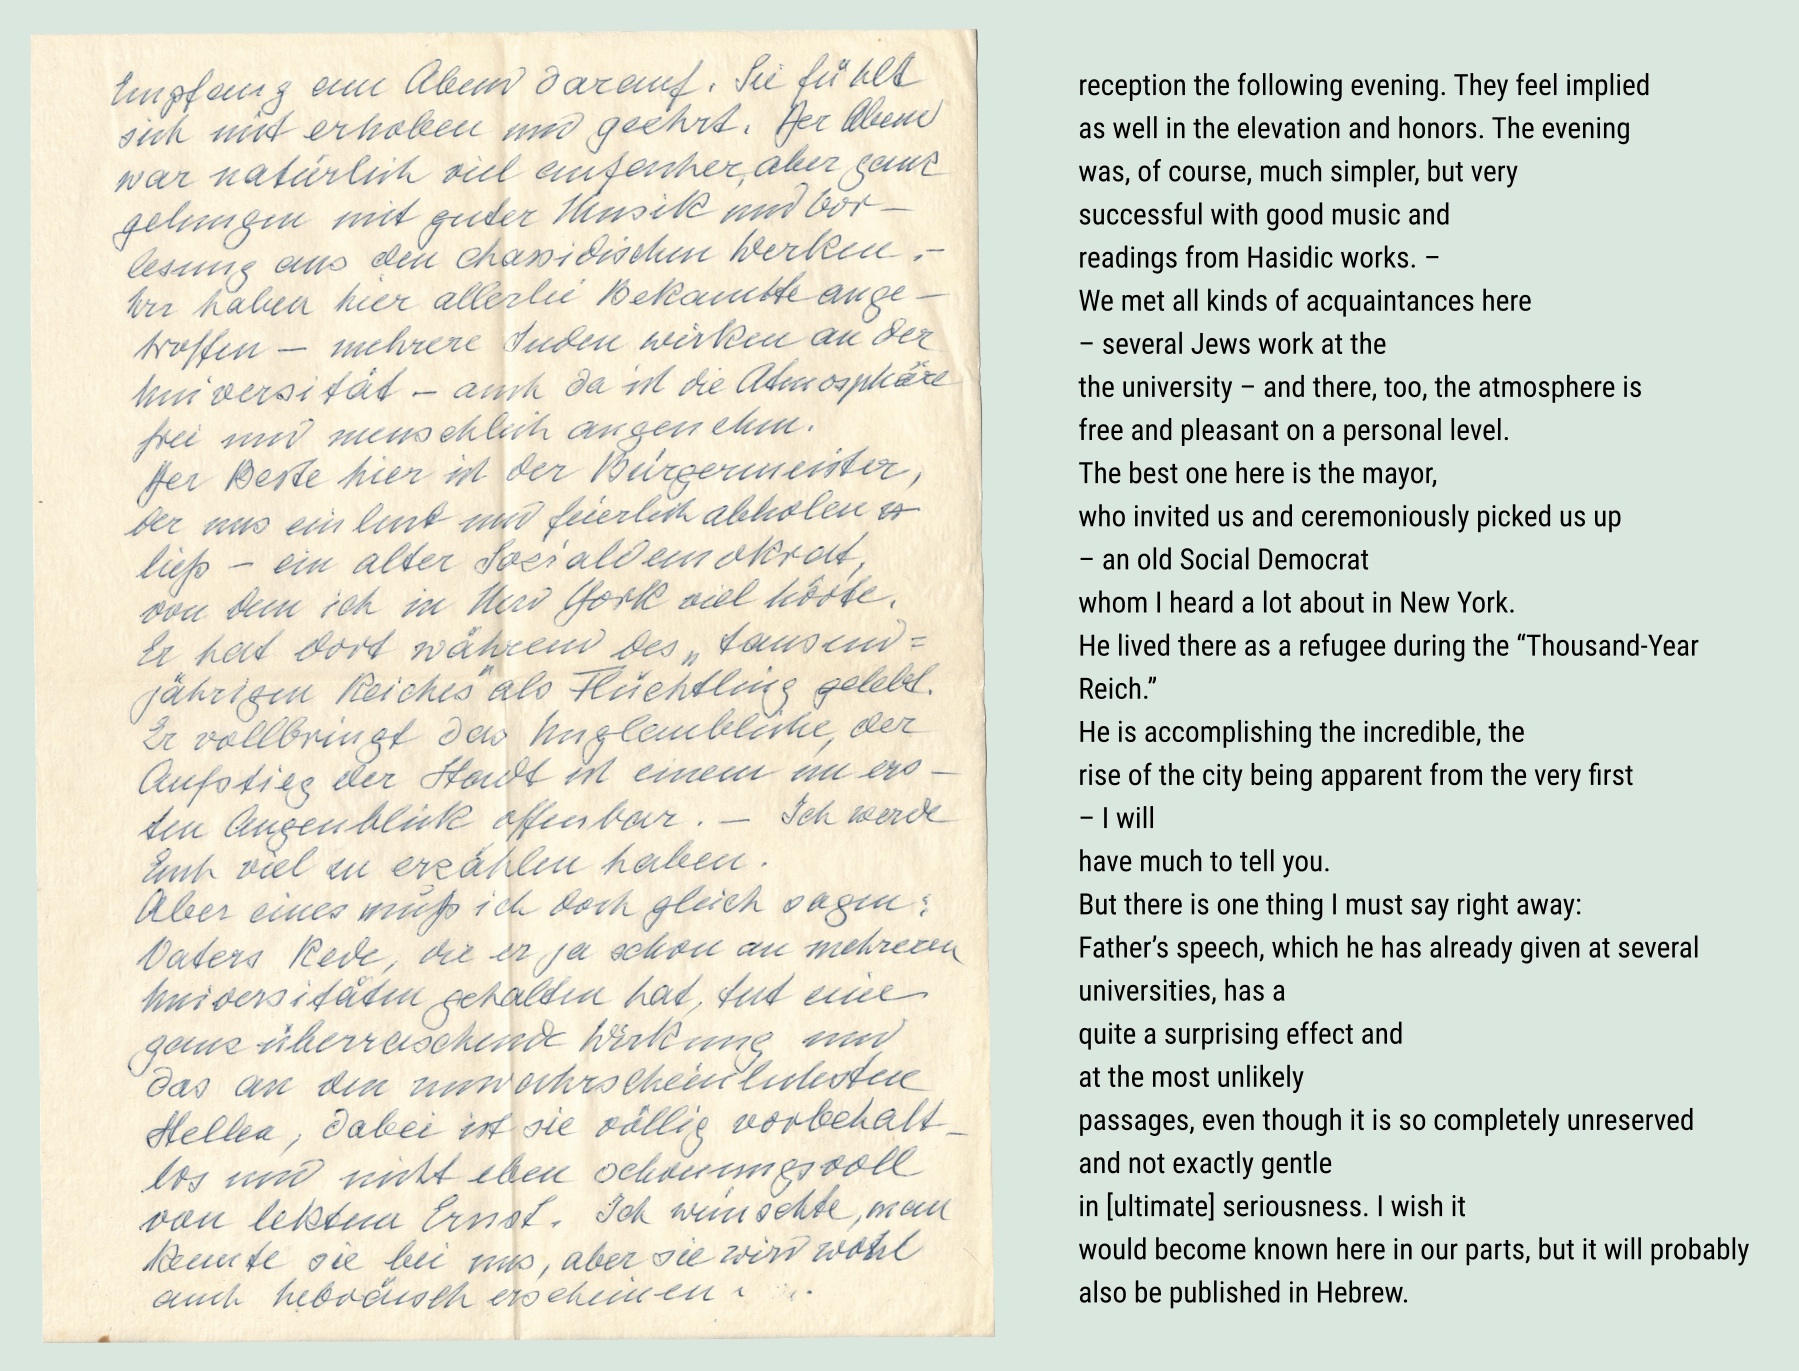 Empfang am Abend darauf. Sie fühlt
sich mit erhoben und geehrt. Der Abend
war natürlich viel einfacher, aber ganz
gelungen mit guter Musik und Vor-
lesung aus den chassidischen Werken. -
Wir haben hier allerlei Bekannte ange-
troffen - mehrere Juden wirken an der
Universität - auch da ist die Atmosphäre
frei und menschlich angenehm.
Der Beste hier ist der Bürgermeister,
der uns einlud und feierlich abholen
ließ - ein alter Sozialdemokrat,
von dem ich in New York viel hörte.
Er hat dort während des „tausend=
jährigen Reiches" als Flüchtling gelebt.
Er vollbringt das Unglaubliche, der
Aufstieg der Stadt ist einem im ers-
ten Augenblick offenbar. - Ich werde
Euch viel zu erzählen haben.
Aber eines muß ich doch gleich sagen:
Vaters Rede, die er ja schon an mehreren
Universitäten gehalten hat, tut eine
ganz überraschende Wirkung und
das an den unwahrscheinlichsten
Stellen, dabei ist sie völlig vorbehalt-
los und nicht eben schonungsvoll
von letztem Ernst. Ich wünschte, man
kennte sie bei uns, aber sie wird wohl
auch hebräisch erscheinen.
reception the following evening. They feel implied
as well in the elevation and honors. The evening
was, of course, much simpler, but very
successful with good music and
readings from Hasidic works. –
We met all kinds of acquaintances here
– several Jews work at the
the university – and there, too, the atmosphere is
free and pleasant on a personal level.
The best one here is the mayor,
who invited us and ceremoniously picked us up
– an old Social Democrat
whom I heard a lot about in New York.
He lived there as a refugee during the “Thousand-Year
Reich.”
He is accomplishing the incredible, the
rise of the city being apparent from the very first
– I will
have much to tell you.
But there is one thing I must say right away:
Father’s speech, which he has already given at several
universities, has a
quite a surprising effect and
at the most unlikely
passages, even though it is so completely unreserved
and not exactly gentle
in [ultimate] seriousness. I wish it
would become known here in our parts, but it will probably
also be published in Hebrew.